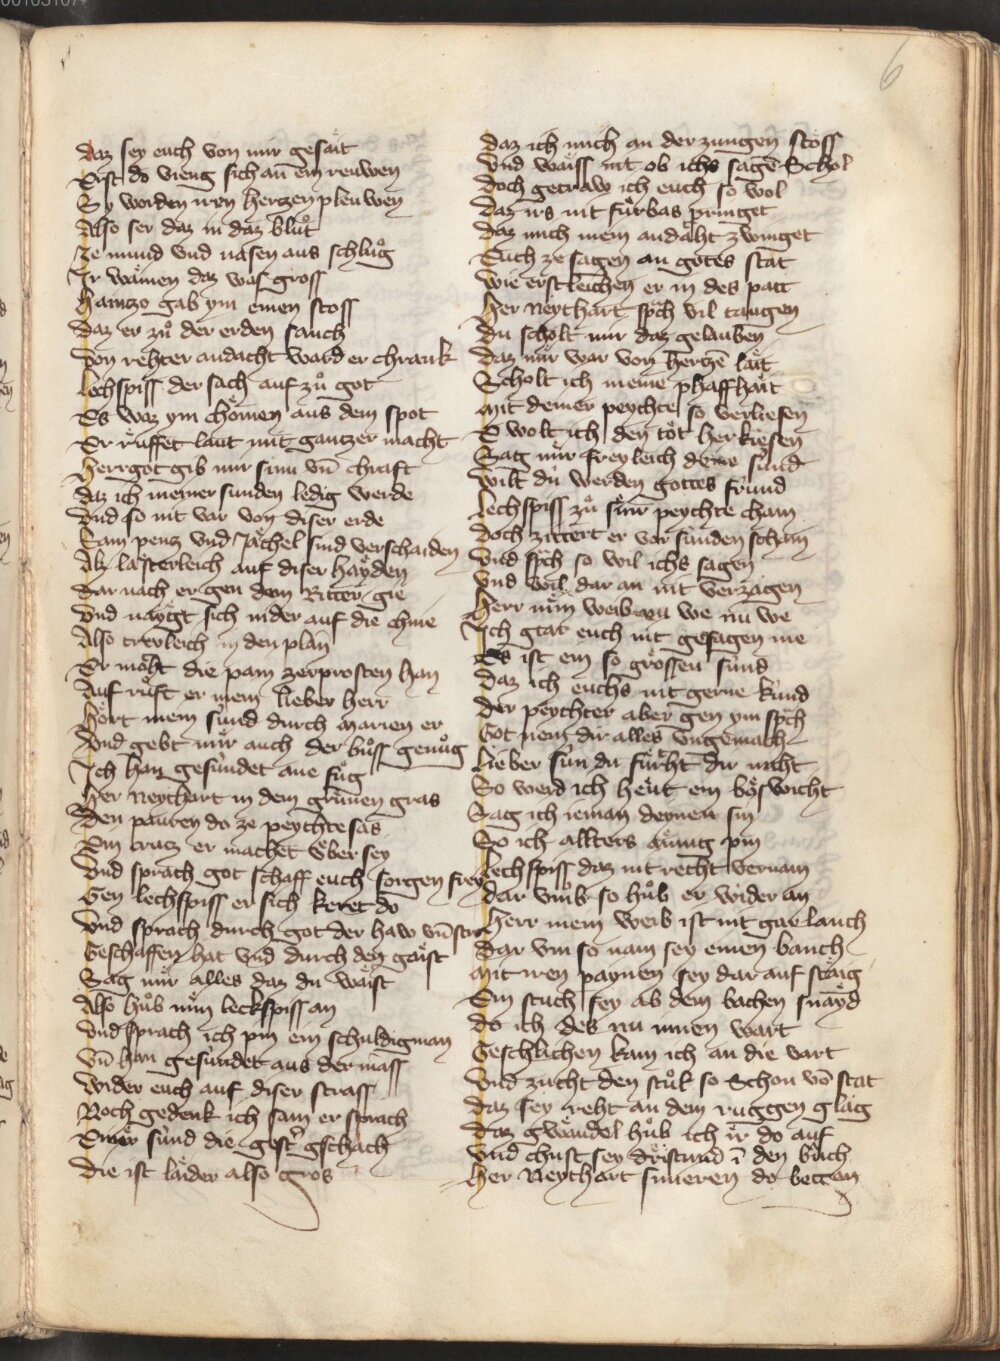 00103107
6
Daz sey euch von mir gesait
Erst do vieng sich an ein reuwen
Sy worden iren herczen pleuwen
Also ser daz in daz blůt
Ze mund vnd nasen aus schlůg
Ir wainen daz waz gross
Haintzo gab ym einen stoss
Daz er zů der erden sanch
Von rehter andacht ward er chrank
Lechspiss der sach auf zů got
Es waz ym chömen aus dem spot
Er růffet laut mit gantzer macht
Herrgot gib mir sinn vn̄ chraft
Daz ich meiner sunden ledig werde
Vnd so nit var von diser erde
Sam penz vnd Jächel sind verschaiden
Als lästerleich auf diser hayden
Dar nach er gen dem Ritter gie
Vnd naygt sich nider auf die chnie
Also trewleich in den plan
Er möht die pain zerprosten han
Auf růft er mein lieber herr
Hört mein sünd durch marien er
Vnd gebt mir auch der bůss genůg
Ich han gesundet ane fůg
Her Neythart in dem grünen gras
Den pauren do ze peychte sas
Ein crucz er machet über sey
Vnd sprach got schaff euch sorgen frey
Gen lechspiss er sich keret do
Vnd sprach durch got der haw vn̄ stro
Geschaffen hat vnd durch den gaist
Sag mir alles daz du waist
Also hůb nun leckspiss an
Vnd sprach ich pin ein schuldig man
Vn̄ han gesündet aus der mass
Wider euch auf diser strass
Noch gedenk ich sam er sprach
Einer sünd die gest gschach
Die ist laider also gros
Daz ich mich an der zungen stöss
Vnd waiss nit ob ichs sagē Schol
Doch getraw ich euch so wol
Daz irs nit fürbas pringet
Daz mich mein andäht zwinget
Euch ze sagen an gotes stat
Wie erst leichen er in des patt
Her Neythart sp̄ch vil taugen
Du scholt mir daz gelauben
Daz mir war von hertzē lait
Scholt ich meine phaffhait
Mit deiner peychte so verliesen
E wolt ich den töt her kiesen
Sag mir frey leich deine sünd
Wilt dů werden gottes fründ
Lechspiss zů sinr peychte cham
Doch zittert er vor sünden scham
Vnd sp̄ch so wil ichs sagen
Vnd wil dar an nit verzagen
Herr mein weib nu we nu we
Ich gtar euch nit gesagen me
Es ist ein so grössen sünd
Daz ich euchs nit gerne künd
Der peychter aber gen ym sp̄ch
Got nem dir alles vngemach
Lieber sun du fürht dir nicht
So werd ich heüt ein böswicht
Sag ich ieman deynen sin
So ich allters ainig pin
Lechspiss daz nit recht vernam
Dar vmb so hůb er wider an
Herr mein weib ist nit gar lanch
Dar vm so nam sey einen banch
Mit iren paynen sey dar auf staig
Ein stuch sey ab dem bachen snayd
Do ich des nu innen wart
Geschlichen kam ich an die vart
Vnd zucht den stůl so Schon vō stat
Daz sey reht an dem ruggen glag
Daz gwändel hůb ich ir do auf
Vnd chust sey dristund ī den bůch
Her Neythart smieren do began